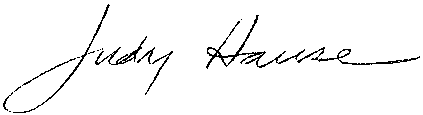 Judy Hause